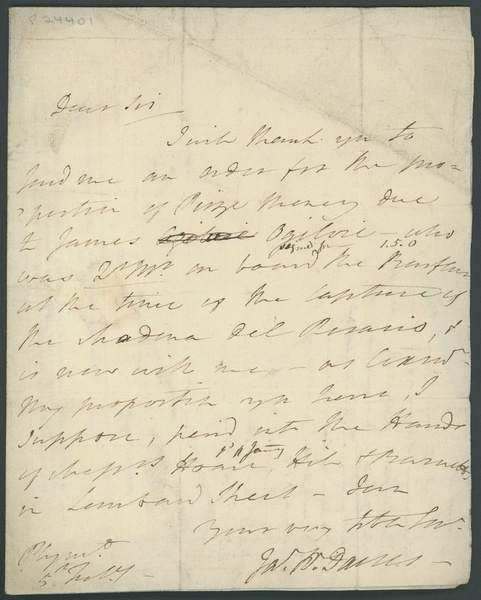 P 24401
Dear Sir
I will thank you to
send me an order for the pro-
portion of Prize Money due
to James Ogilvie – who
signed for 1.5.0
was 2d Mr. on board the
at the time of the Capture of
the Madona Del Rosario, &
is now with me – as
My proportion you have, I
suppose, paid into the Hands
of Messrs. Hoare, Hill &
in Lombard Street – I am
Your very Hble Ser.
Jas. R. Dacres
Plymo.
5th